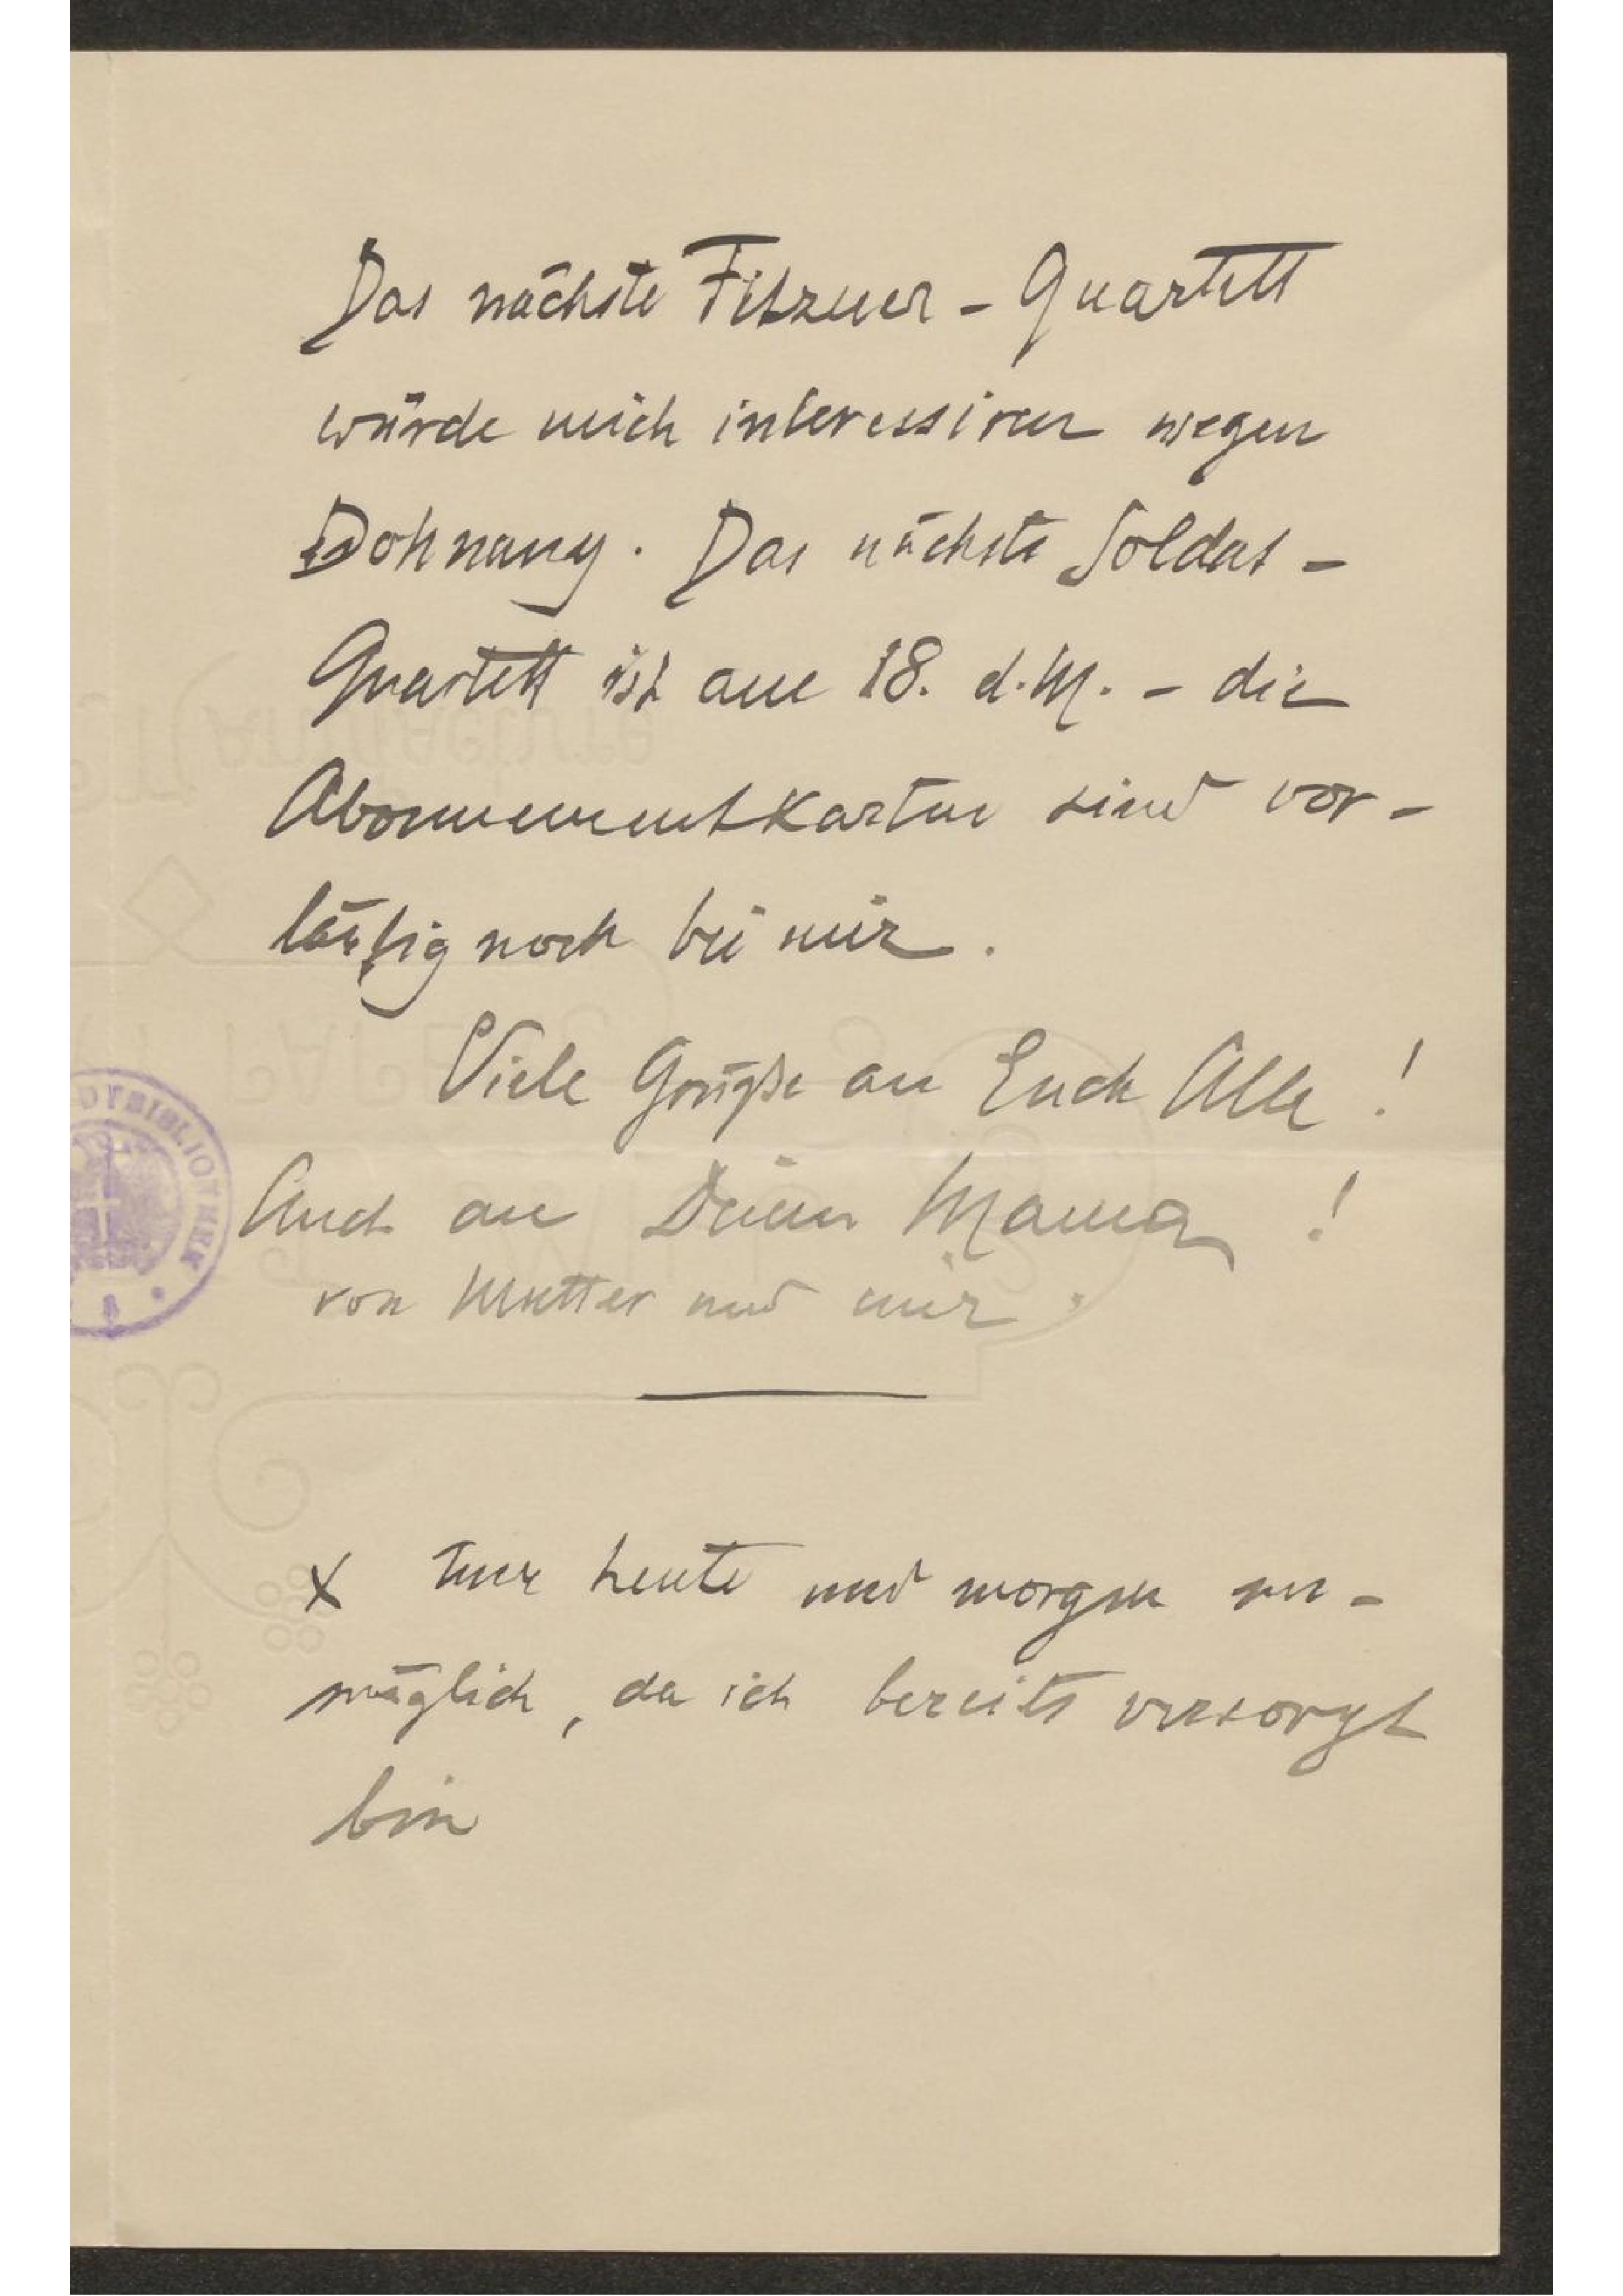 Das nächste Fitzner-Quartett
würde mich interessiren wegen
Dohnany. Das nächste Soldat-
Quartett ist am 18. d.M. - die
Abonnementkarten sind vor-
läufig noch bei mir.
Viele Grüße an Euch Alle!
Auch an Deine Mama!
von Mutter und mir.
x Nur heute und morgen un-
möglich, da ich bereits versorgt
bin